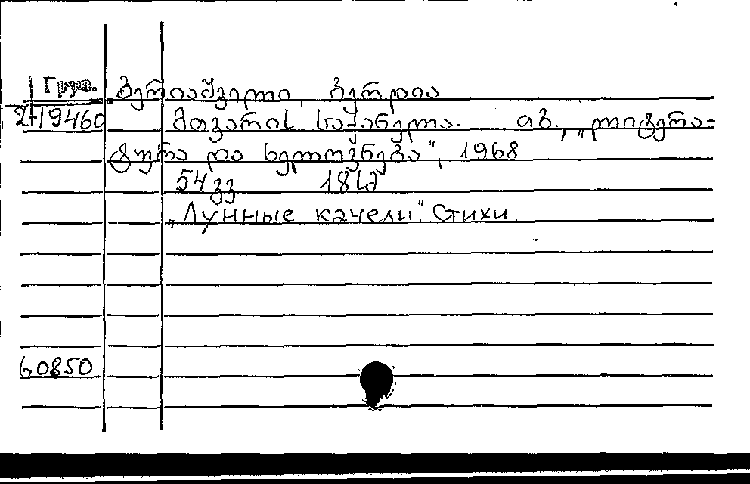 Груз. ბერიაშვილი, ბერდია
2-19460 მთვარის საქანელა. თბ., „ლიტერა-
ტურა და ხელოვნება“, 1968
54 გვ
„Лунные качели“. Стихи
60850